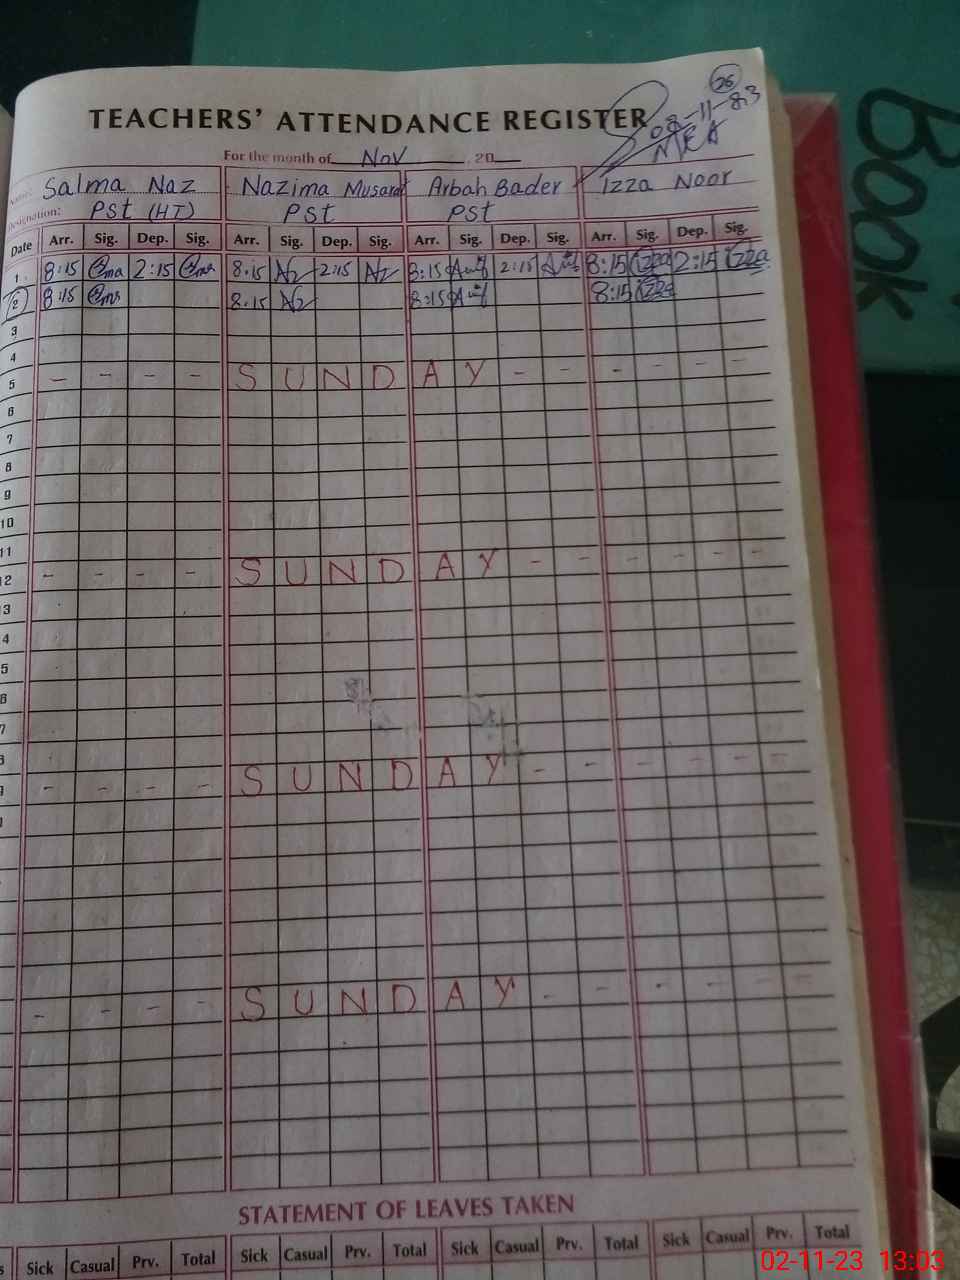 26
TEACHERS' ATTENDANCE REGISTER
02-11-23
MEA
For the month of Nov , 20
Name: Salma Naz Nazima Musarat Arbah Bader Izza Noor
Designation: Pst (HT) Pst Pst
Date Arr. Sig. Dep. Sig. Arr. Sig. Dep. Sig. Arr. Sig. Dep. Sig. Arr. Sig. Dep. Sig.
1 8:15 2:15 8.15 2:15 8:15 2:15 8:15 Izza 2:15 Izza
2 8:15 8.15 8:15 8:15 Izza
3
4
5 - - - - S U N D A Y - - - - - -
6
7
8
9
10
11
12 - - - - S U N D A Y - - - - - -
3
4
5
6
7
8
9 - - - - S U N D A Y - - - - - -
- - - - S U N D A Y - - - - - -
STATEMENT OF LEAVES TAKEN
s Sick Casual Prv. Total Sick Casual Prv. Total Sick Casual Prv. Total Sick Casual Prv. Total
Book
02-11-23 13:03